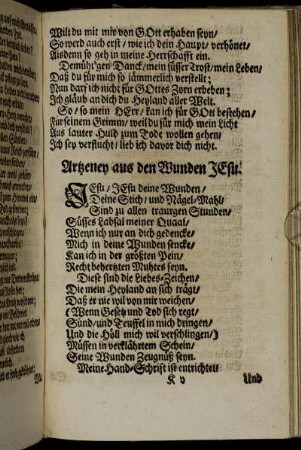 Wilt du mit mir von GOtt erhaben seyn/
So werd auch erst/ wie ich dein Haupt/ verhönet/
Alsdenn so geh in meine Herrschafft ein.
Demüht'gen Danck/ mein süsser Trost/ mein Leben/
Daß du für mich so jämmerlich verstellt;
Nun darf ich nicht für GOttes Zorn erbeben;
Ich gläub an dich du Heyland aller Welt.
So/ so mein HErr/ kan ich für GOtt bestehen/
Für seinem Grimm/ weil du für mich mein Licht
Aus lauter Huld zum Tode wollen gehen/
Ich sey verflucht/ lieb ich davor dich nicht.
Artzeney aus den Wunden JEsu.
JEsu/ JEsu deine Wunden/
Deine Stich/ und Nägel-Mahl/
Sind zu allen traurgen Stunden/
Süsses Labsal meiner Quaal/
Wenn ich nur an dich gedencke/
Mich in deine Wunden sencke/
Kan ich in der größten Pein/
Recht behertzten Muhtes seyn.
Diese sind die Liebes-Zeichen/
Die mein Heyland an sich trägt/
Daß er nie wil von mir weichen/
(Wenn Gesetz und Tod sich regt/
Sünd/ und Teuffel in mich dringen/
Und die Höll mich wil verschlingen/)
Müssen in verklährtem Schein/
Seine Wunden Zeugnüß seyn.
Meine Hand-Schrift ist entrichtet/
K v Und